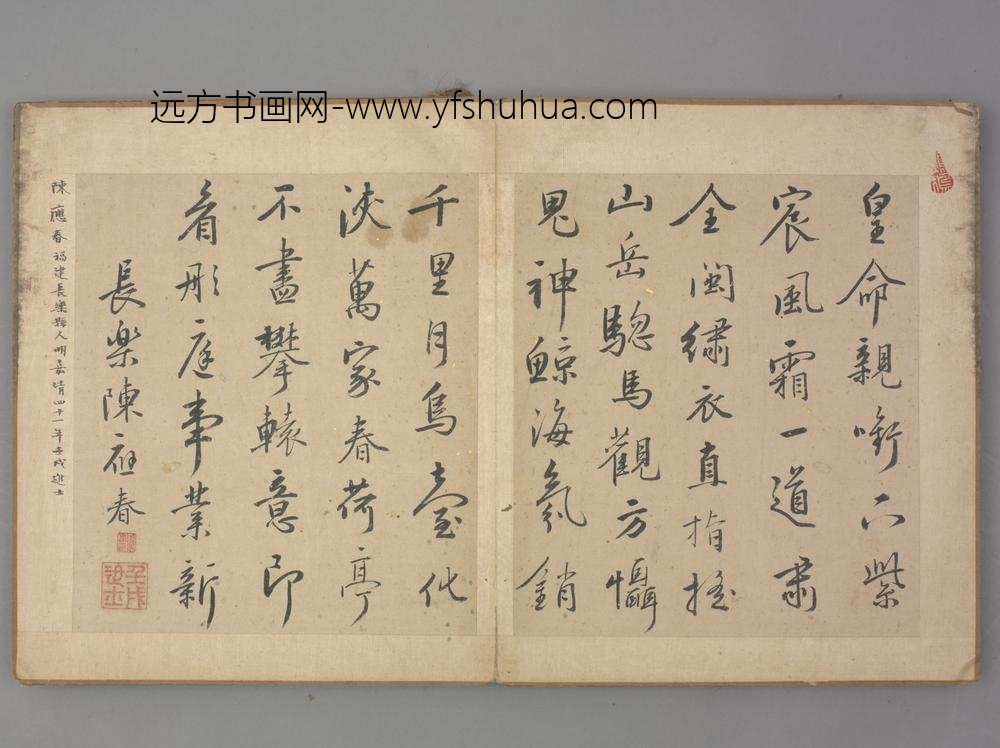 远方书画网-www.yfshuhua.com
皇命親銜下紫
宸風霜一道肅
全閩繡衣直指搖
山岳驄馬觀方懾
鬼神鯨海氛銷
千里月烏臺化
浹萬家春荷亭
不盡攀轅意即
看彤庭事業新
長樂陳應春
壬戌進士
陳應春福建長樂縣人明嘉靖四十一年壬戌進士